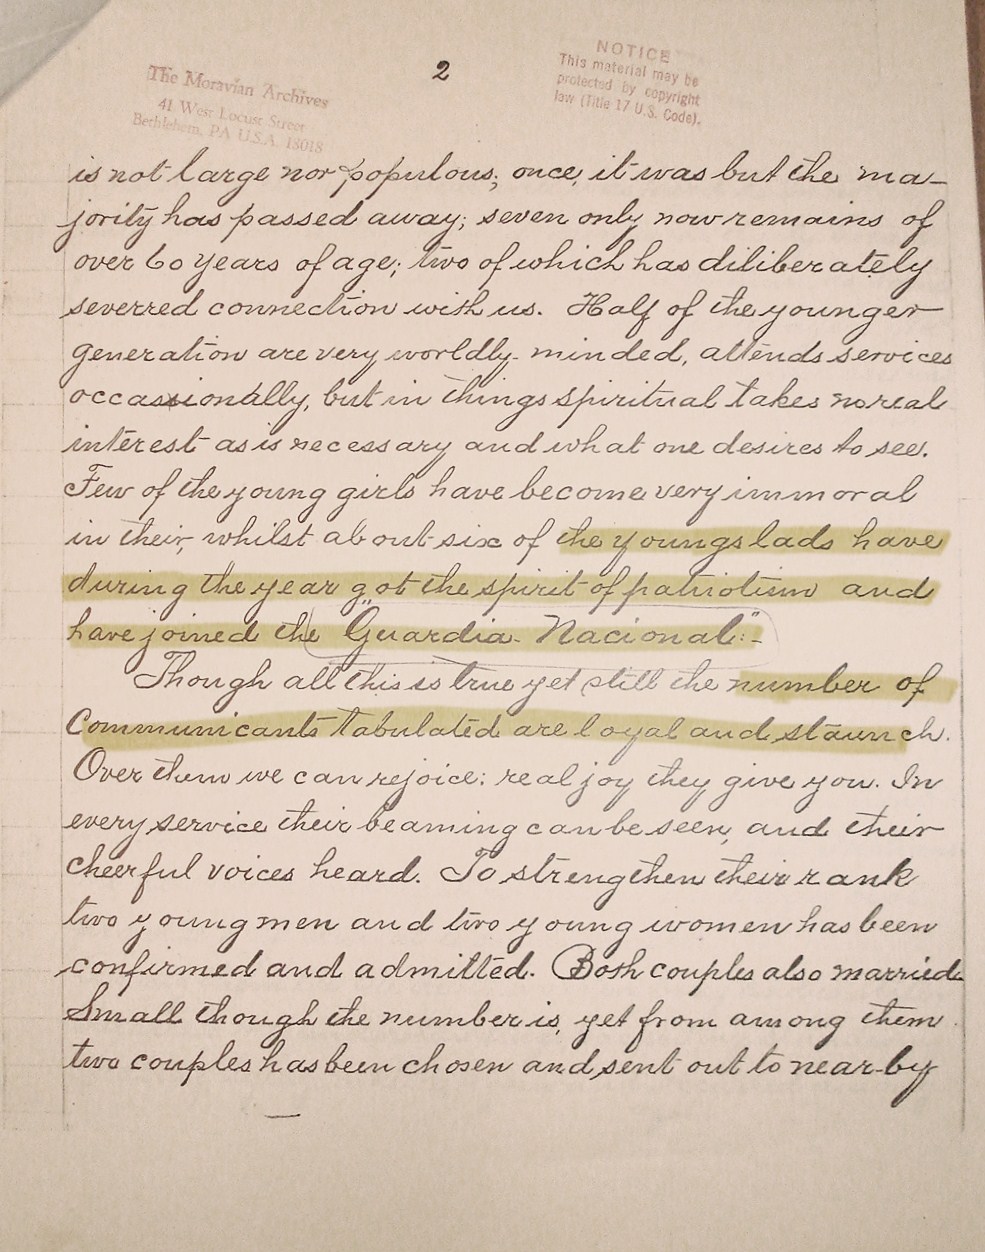 2
The Moravian Archives
41 West Locust Street
Bethlehem, PA U.S.A. 18018
NOTICE
This material may be
protected by copyright
law (Title 17 U.S. Code).
is not large nor populous; once, it was but the ma-
jority has passed away; seven only now remains of
over 60 years of age; two of which has diliberately
severred connection with us. Half of the younger
generation are very worldly-minded, attends services
occassionally, but in things spiritual takes no real
interest as is necessary and what one desires to see.
Few of the young girls have become very immoral
in their, whilst about six of the youngs lads have
during the year got the spirit of patriotism and
have joined the "Guardia Nacional."-
Though all this is true yet still the number of
Communicants tabulated are loyal and staunch.
Over them we can rejoice: real joy they give you. In
every service their beaming can be seen, and their
cheerful voices heard. To strengthen their rank
two young men and two young women has been
confirmed and admitted. Both couples also married.
Small though the number is, yet from among them
two couples has been chosen and sent out to near-by